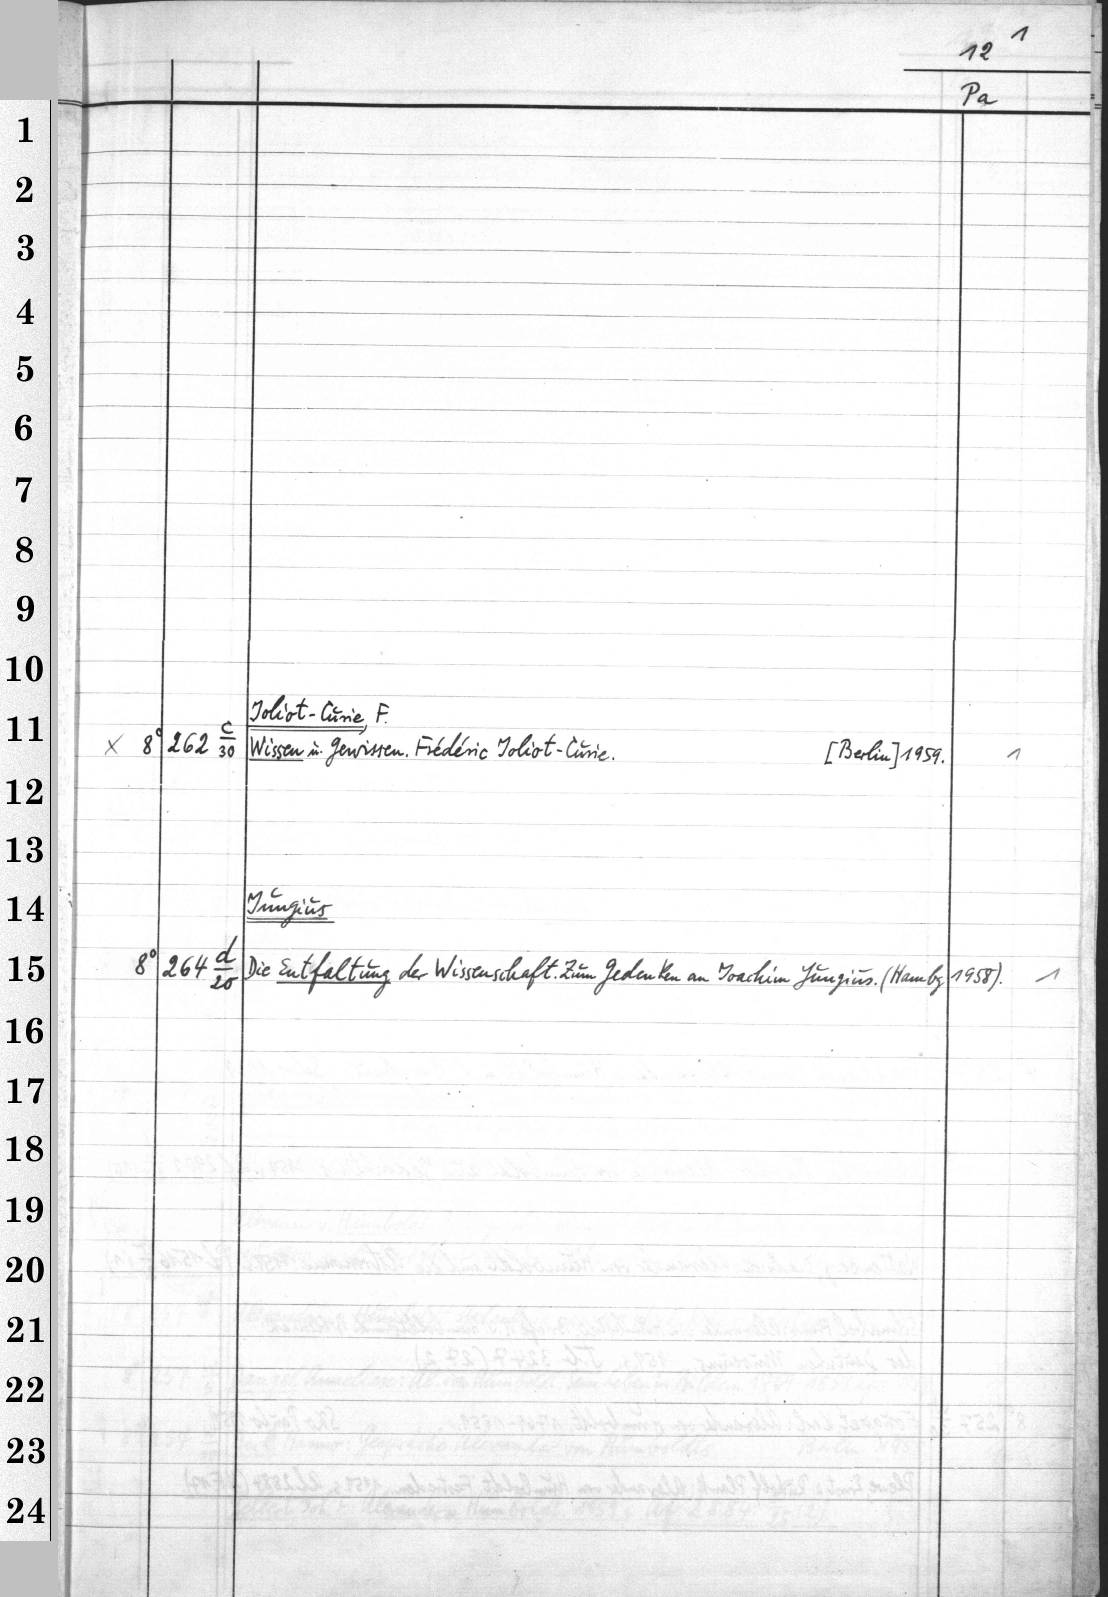 12 1
Pa
1
2
3
4
5
6
7
8
9
10
Joliot-Curie, F.
11
x 8° 262 c/30 Wissen u. Gewissen. Frédéric Joliot-Curie. [Berlin] 1959. 1
12
13
Jungius
14
15 8° 264 d/20 Die Entfaltung der Wissenschaft. Zum Gedenken an Joachim Jungius. (Hambg 1958). 1
16
17
18
19
20
21
22
23
24